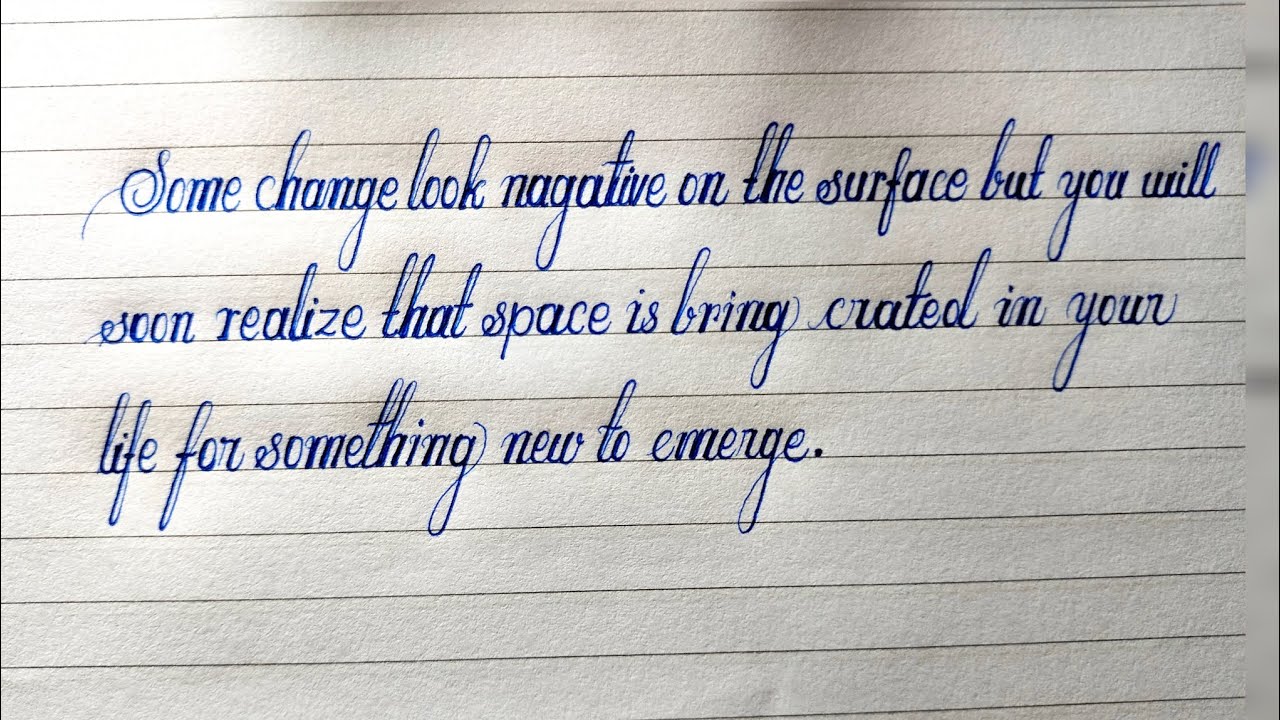 Some change look nagative on the surface but you will
soon realize that space is bring crated in your
life for something new to emerge.